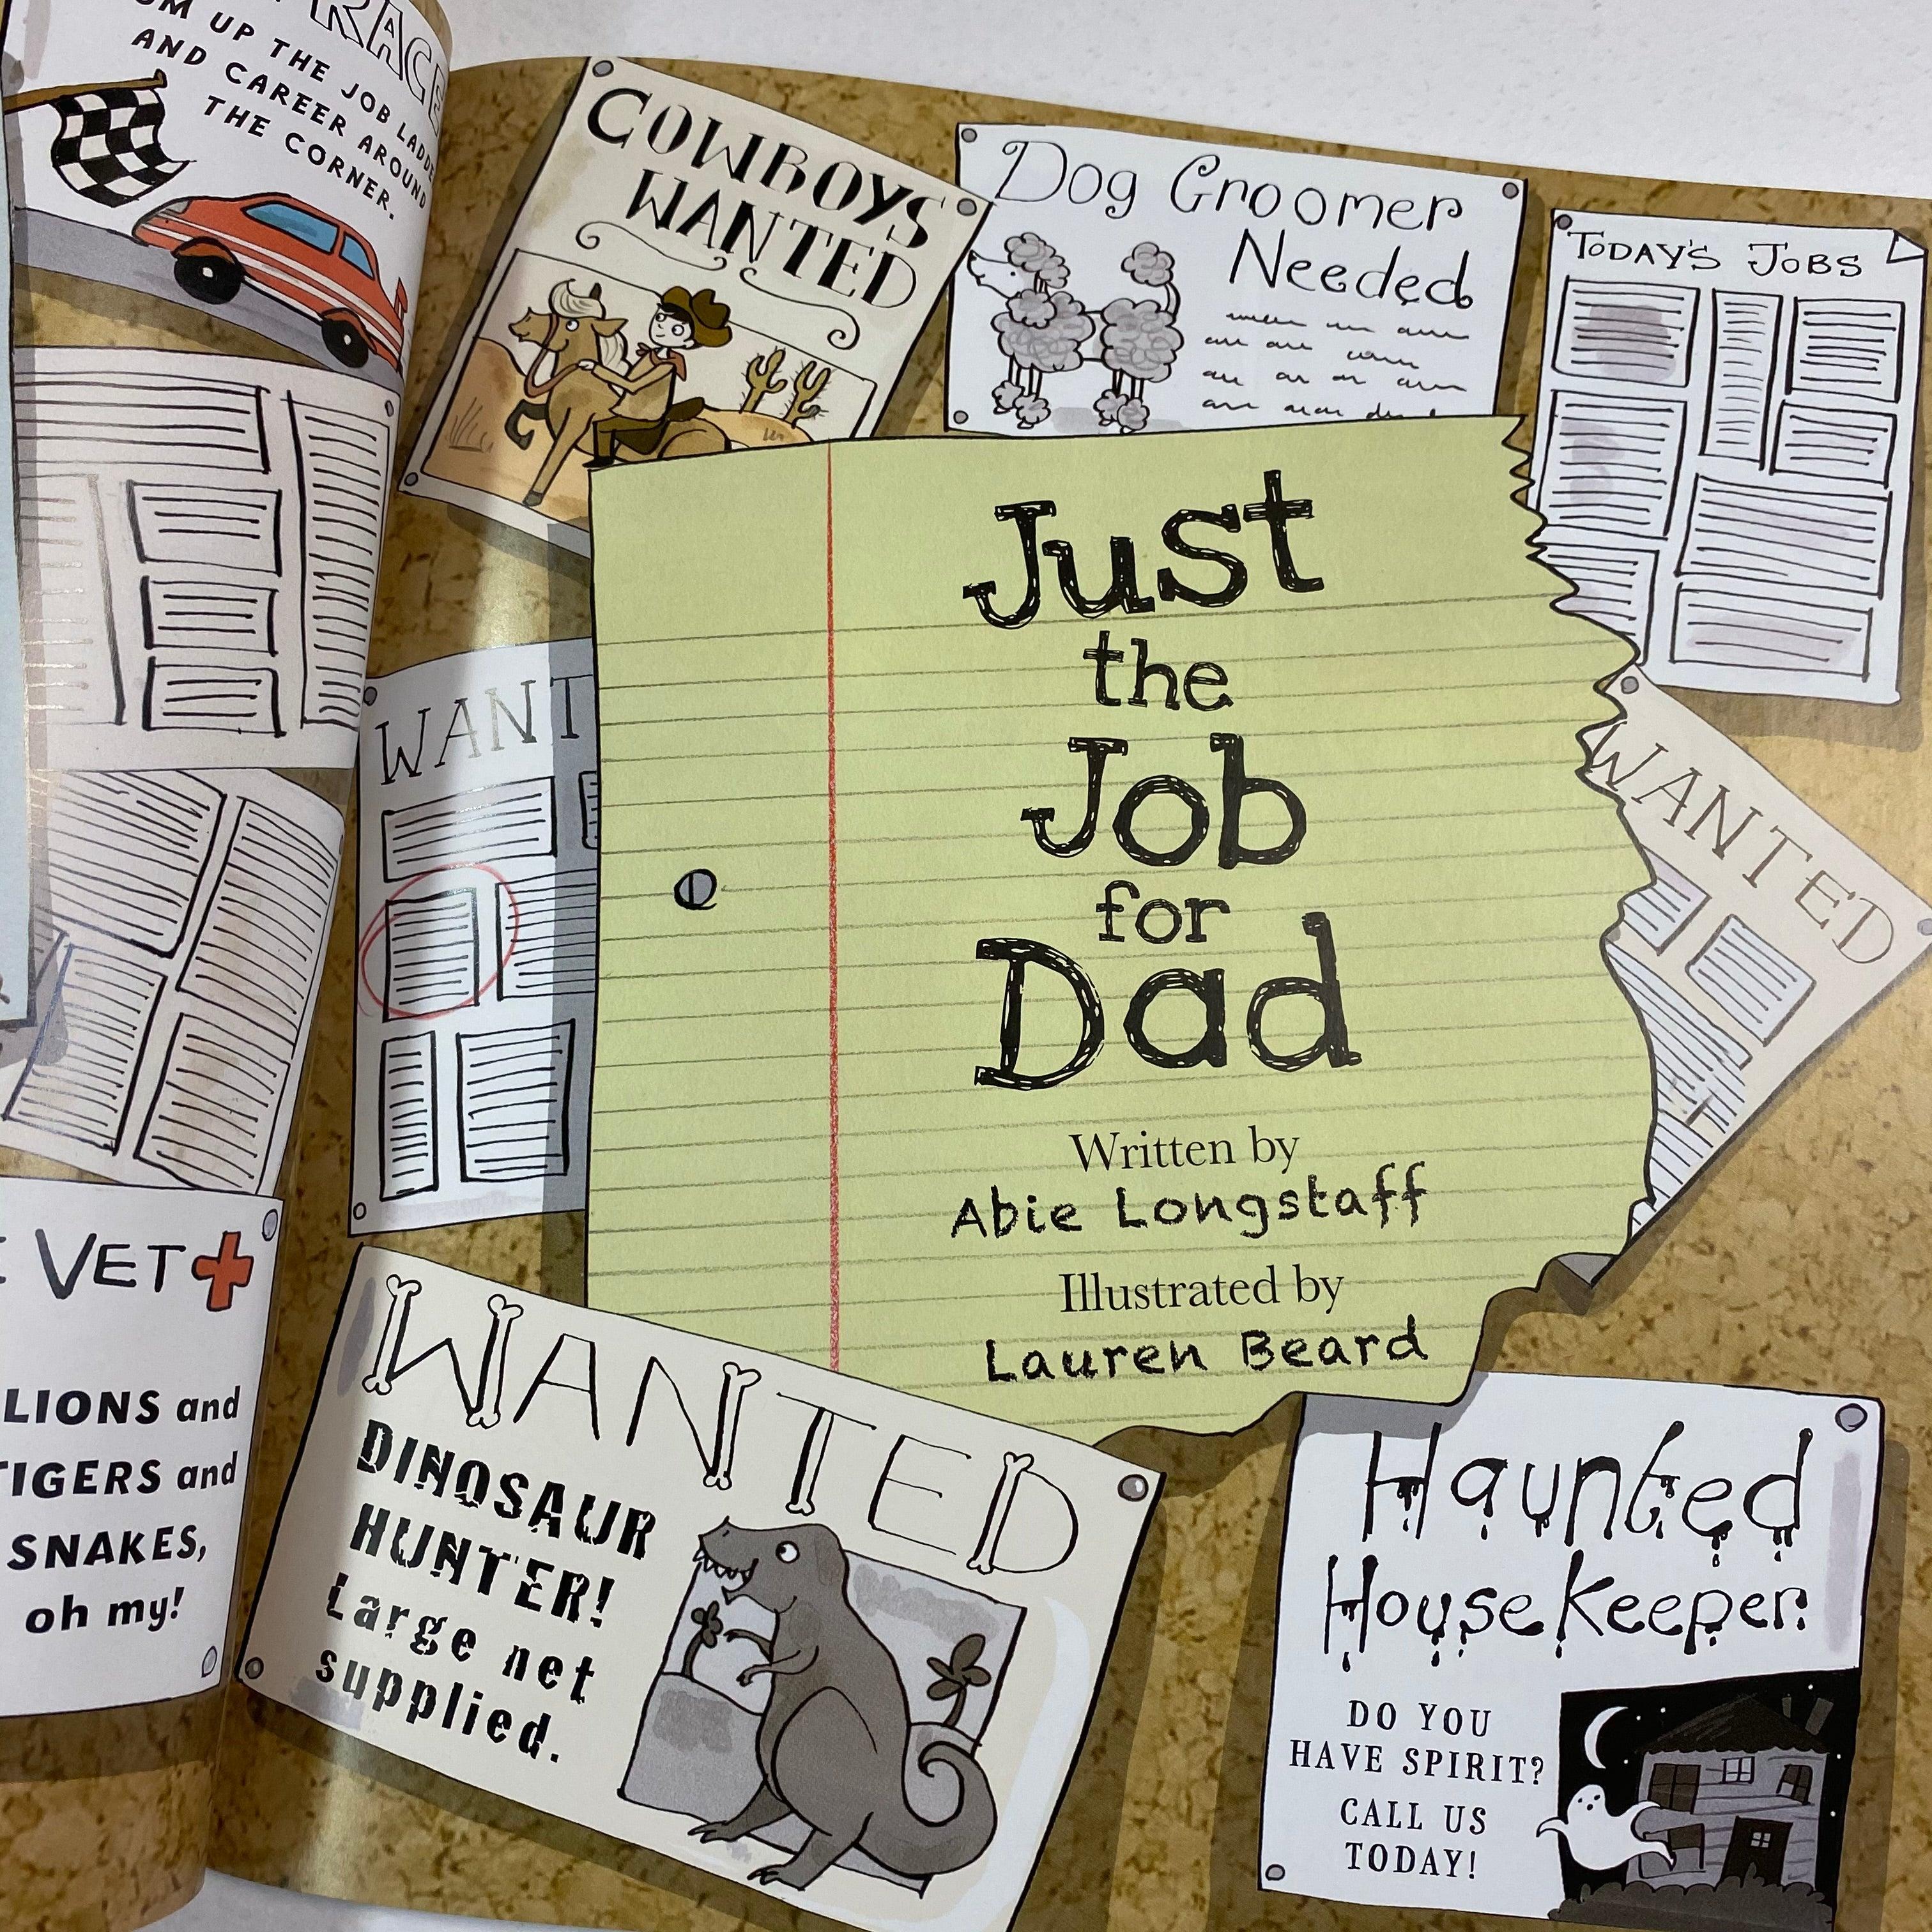 RACE
UP THE JOB
AND CAREER AROUND
THE CORNER.
COWBOYS
WANTED
Dog Groomer
Needed
TODAY'S JOBS
Just
the
Job
for
Dad
Written by
Abie Longstaff
Illustrated by
Lauren Beard
WANTED
VET
LIONS and
TIGERS and
SNAKES,
oh my!
WANTED
DINOSAUR
HUNTER!
Large net
supplied.
Haunted
House Keeper
DO YOU
HAVE SPIRIT?
CALL US
TODAY!